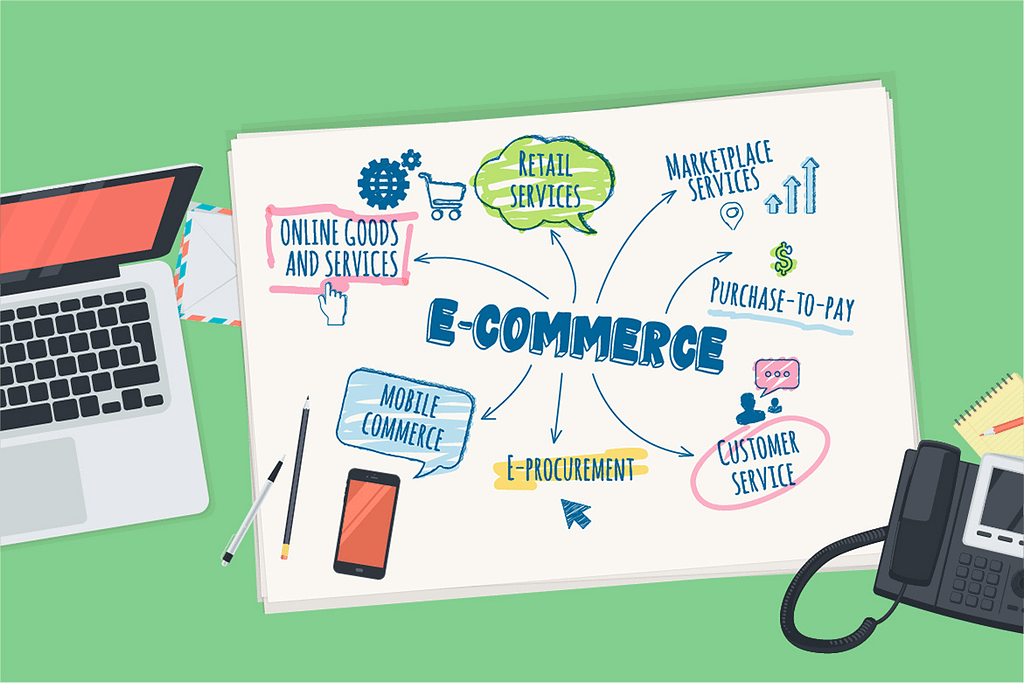 RETAIL
SERVICES
MARKETPLACE
SERVICES
ONLINE GOODS
AND SERVICES
$
PURCHASE-TO-PAY
E-COMMERCE
MOBILE
COMMERCE
E-PROCUREMENT
CUSTOMER
SERVICE